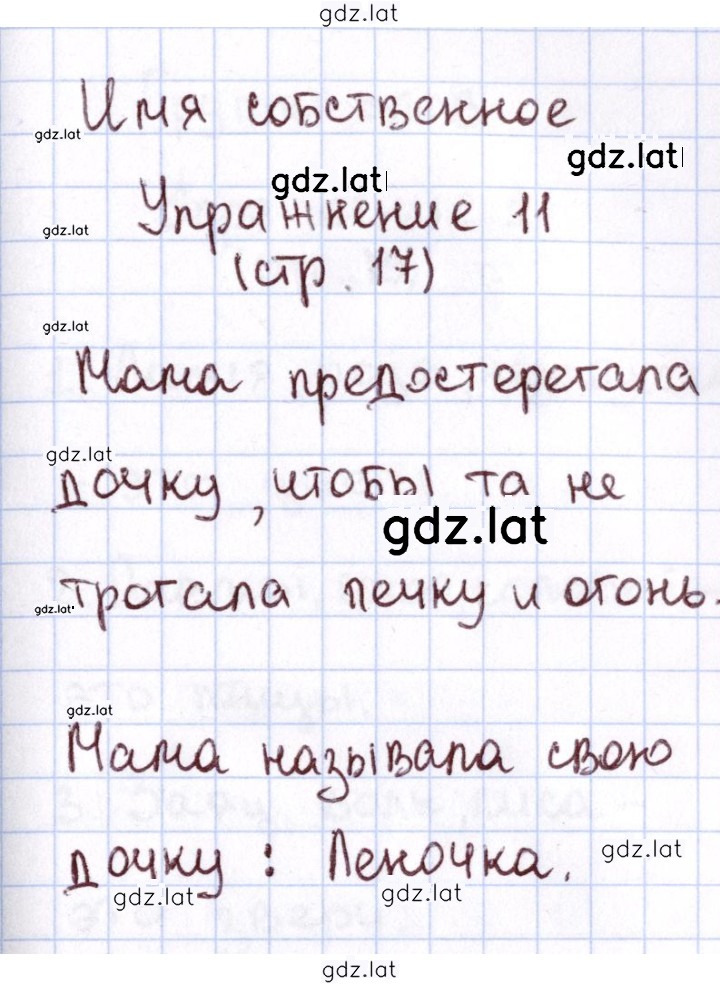 gdz.lat
Имя собственное
gdz.lat
gdz.lat
gdz.lat
Упражнение 11
gdz.lat
(стр. 17)
gdz.lat
Мама предостерегала
gdz.lat
дочку, чтобы та не
gdz.lat
gdz.lat
трогала печку и огонь.
gdz.lat
Мама называла свою
дочку: Леночка.
gdz.lat
gdz.lat
gdz.lat
gdz.lat